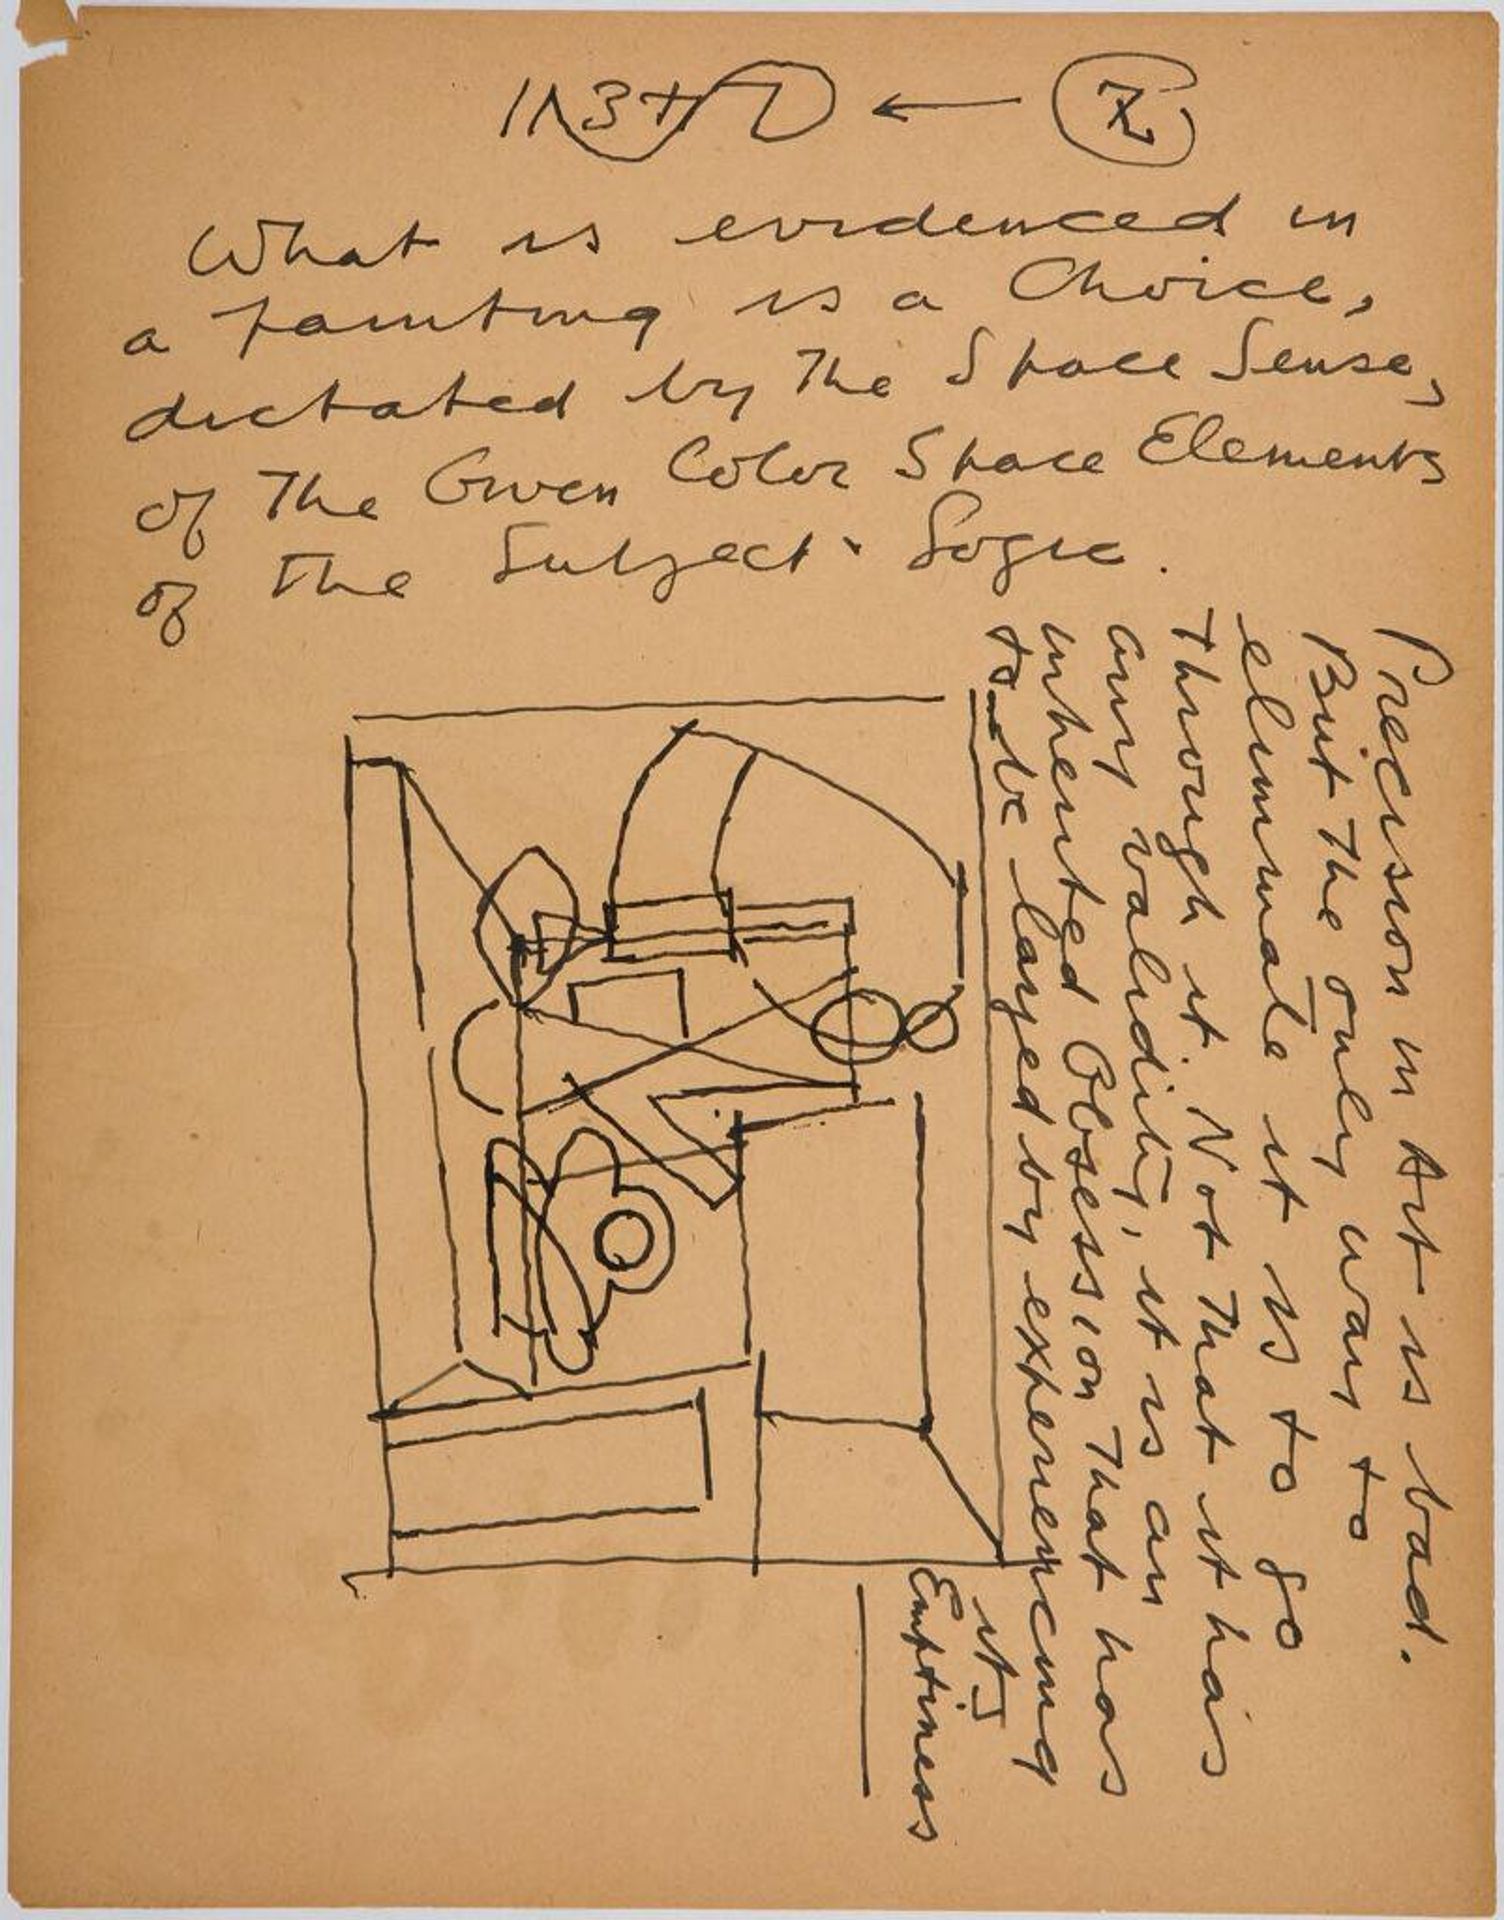 What is evidenced in
a painting is a Choice,
dictated by The Space Sense,
of The Given Color Space Elements
of The Subject. Logic.
Precision in Art is bad.
But The only way to
eliminate it is to go
through it. Not That it has
any validity, it is an
inherited Obsession That has
to be layed by experiencing
its
Emptiness